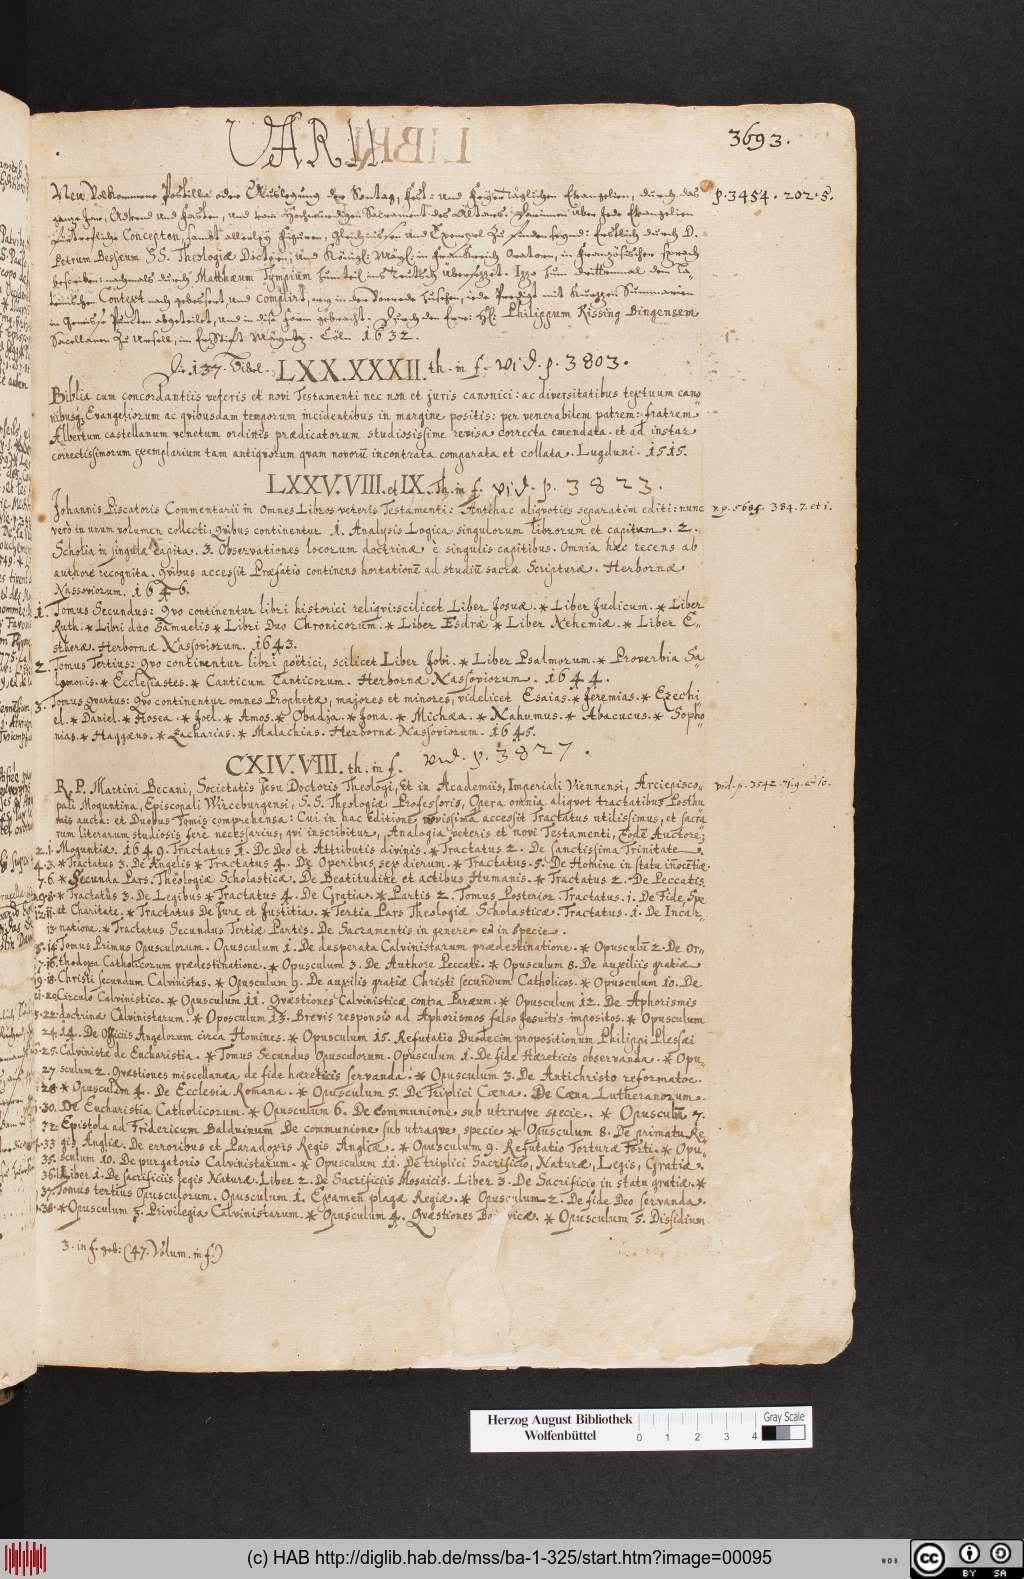 VARII.
3693.
New Volkommene Postilla oder Außlegung der Sontag, Fest: und Feyertäglichen Evangelien, durch das
p. 3454. 202. 5.
gantze Jahr, Advent und Fasten, und vom Hochwürdigen Sacrament des Altars. Darinnen über jede Evangelien
Concepten, sambt allerley Figuren, Gleichnissen und Exempel zu finden seynd: Erstlich durch D.
Petrum Bessæum SS. Theologiæ Doctorn, und Königl: Mayt: in Franckreich Oratorn, in Französischer Sprach
beschrieben: nachmals durch Matthæum Tympium zum teil ins Teutsch übersezzet. Izzo zum drittenmal dem La⸗
teinischen Context nach gebessert, und complirt, in der Vorrede zusehen, jede Predigt mit kurzzen Summarien
in Gewisse Puncten abgeteilet, und in diese form gebracht. Durch den Philippum Kissing Bingensem
Sacellanen zu Ursell, im Ertzstift Mayntz. Cöln 1632.
137. Bibel. LXX.XXXII. th. in f. vid. p. 3803.
Biblia cum concordantiis veteris et novi Testamenti nec non et juris canonici: ac diversitatibus textuum cano⸗
nibusq; Evangeliorum ac quibusdam temporum incidentibus in margine positis: per venerabilem patrem: fratrem
Albertum castellanum venetum ordinis prædicatorum studiosissime revisa correcta emendata. et ad instar
correctissimorum exemplarium tam antiquorum quam novorū incontrata comparata et collata. Lugduni. 1515.
LXXV.VIII. et IX. Th. in f. vid. p. 3823.
Johannis Piscatoris Commentarii in Omnes Libros veteris Testamenti: Antehac aliquoties separatim editi: nunc
384. 7. et 1.
verò in unum volumen collecti: quibus continentur 1. Analysis Logica singulorum librorum et capitum. 2.
Scholia in singula capita. 3. Observationes locorum doctrinæ è singulis capitibus. Omnia hæc recens ab
authore recognita. quibus accessit Præfatio continens hortationē ad studiū sacræ Scripturæ. Herbornæ
Nassoviorum. 1646.
1. Tomus Secundus: quo continentur libri historici reliqui: scilicet Liber Josuæ. * Liber Judicum. * Liber
Ruth. * Libri duo Samuelis * Libri Duo Chronicorum. * Liber Esdræ * Liber Nehemiæ. * Liber E⸗
stheræ. Herbornæ Nassoviorum. 1643.
2. Tomus Tertius: quo continentur libri poëtici, scilicet Liber Jobi. * Liber Psalmorum. * Proverbia Sa⸗
lomonis. * Ecclesiastes. * Canticum Canticorum. Herbornæ Nassoviorum. 1644.
3. Tomus quartus: quo continentur omnes Prophetæ, majores et minores, videlicet Esaias. * Jeremias. * Ezechi
el. * Daniel. * Hosea. * Joel. * Amos. * Obadja. * Jona. * Michæa. * Nahumus. * Abacucus. * Sopho
nias. * Haggæus. * Zacharias. * Malachias. Herbornæ Nassoviorum. 1645.
CXIV.VIII. th. in f. vid. p. 3827.
R. P. Martini Becani, Societatis Jesu Doctoris Theologi, Et in Academiis, Imperiali Viennensi, Arciepisco⸗
vid. p. 3542. 71. 9. et 10.
pali Moguntina, Episcopali Wirceburgensi, S.S. Theologiæ Professoris, Opera omnia aliquot tractatibus Posthu
mis aucta: et Duobus Tomis comprehensa: Cui in hac Editione novissima accessit Tractatus utilissimus, et sacra
rum literarum studiosis ferè necessarius, qui inscribitur, Analogia veteris et novi Testamenti, Eodē Auctore;
2. 1. Moguntiæ. 1649. Tractatus 1. De Deo et Attributis divinis. * Tractatus 2. De sanctissima Trinitate
4. 3. * Tractatus 3. De Angelis * Tractatus 4. De Operibus sex dierum. * Tractatus. 5. De Homine in statu inocētiæ.
7. 6. * Secunda Pars. Theologiæ Scholasticæ. De Beatitudine et actibus Humanis. * Tractatus 2. De Peccatis
10. 9. 8. * Tractatus 3. De Legibus * Tractatus 4. De Gratia. * Partis 2. Tomus Posterior. Tractatus. 1. De Fide, Spe
12. 11. et Charitate. * Tractatus De Jure et Justitia. * Tertia Pars Theologiæ Scholasticæ. Tractatus. 1. De Incar⸗
13. natione. * Tractatus Secundus Tertiæ Partis. De Sacramentis in genere et in specie.
15. 14. Tomus Primus Opusculorum. Opusculum 1. De desperata Calvinistarum prædestinatione. * Opusculū 2. De or⸗
17. 16. thodoxa Catholicorum prædestinatione. * Opusculum 3. De Authore Peccati. * Opusculum 8. De auxiliis gratiæ
19. 18. Christi secundum Calvinistas. * Opusculum 9. De auxilis gratiæ Christi secundum Catholicos. * Opusculum 10. De
21. 20. Circulo Calvinistico. * Opusculum 11. Quæstiones Calvinisticæ contra Paræum. * Opusculum 12. De Aphorismis
3. 22. doctrinæ Calvinistarum. * Oposculum 13. Brevis responsio ad Aphorismos falso Jesuitis impositos. * Opusculum
24. 14. De Officiis Angelorum circa Homines. * Opusculum 15. Refutatio Duodecim propositionum Philippi Plessæi
25. Calvinistæ de Eucharistia. * Tomus Secundus Opusculorum. Opusculum 1. De fide Hæreticis observanda. * Opu⸗
27. sculum 2. Quæstiones miscellanææ de fide hæreticis servanda. * Opusculum 3. De Antichristo reformatoe.
28. * Opusculum 4. De Ecclesia Romana. * Opusculum 5. De Triplici Cœna. De Cæna Lutheranorum.
30. De Eucharistia Catholicorum. * Opusculum 6. De Communione sub utraque specie. * Opusculū 7.
32. Epistola ad Fridericum Balduinum De communione sub utraque specie * Opusculum 8. De primatu Re⸗
33 gis Angliæ. De erroribus et Paradoxis Regis Angliæ. * Opusculum 9. Refutatio Torturæ Forti. * Opu⸗
35. sculum 10. De purgatorio Calvinistarum. * Opusculum 11. De triplici Sacrificio, Naturæ, Legis, Gratiæ.
36. Liber 1. De sacrificiis legis Naturæ. Liber 2. De Sacrificiis Mosaicis. Liber 3. De Sacrificio in statu gratiæ. *
37. Tomus tertius Opusculorum. Opusculum. 1. Examen plagæ Regiæ. * Opusculum 2. De fide Deo servanda.
38. * Opusculum 3. Privilegia Calvinistarum. * Opusculum 4. Quæstiones * Opusculum 5. Dissidium
3. in f. geb: (47. Volum. in f.)
Herzog August Bibliothek
Wolfenbüttel
0 1 2 3 4
Gray Scale
(c) HAB http://diglib.hab.de/mss/ba-1-325/start.htm?image=00095
WDB
cc BY SA